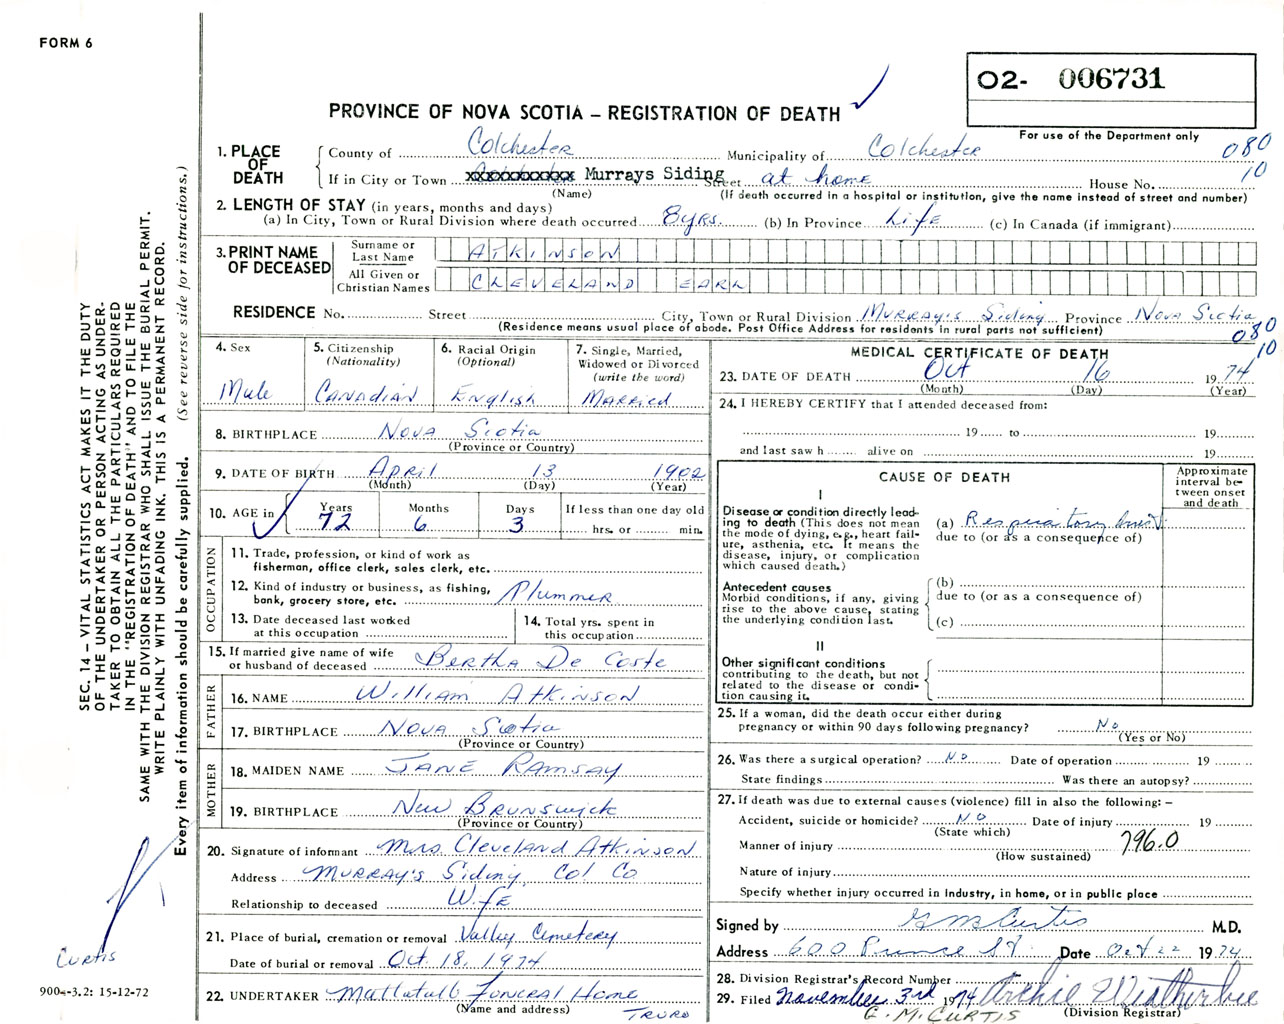 FORM 6
O2- 006731
PROVINCE OF NOVA SCOTIA – REGISTRATION OF DEATH
For use of the Department only
080
10
1. PLACE OF DEATH
County of Colchester Municipality of Colchester
If in City or Town Murrays Siding Street at home House No.
(Name) (If death occurred in a hospital or institution, give the name instead of street and number)
2. LENGTH OF STAY (in years, months and days)
(a) In City, Town or Rural Division where death occurred 8 yrs. (b) In Province Life (c) In Canada (if immigrant)
3. PRINT NAME OF DECEASED
Surname or Last Name ATKINSON
All Given or Christian Names CLEVELAND EARL
RESIDENCE No. Street City, Town or Rural Division Murray's Siding Province Nova Scotia
(Residence means usual place of abode. Post Office Address for residents in rural parts not sufficient)
080
10
4. Sex
Male
5. Citizenship
(Nationality)
Canadian
6. Racial Origin
(Optional)
English
7. Single, Married,
Widowed or Divorced
(write the word)
Married
8. BIRTHPLACE Nova Scotia
(Province or Country)
9. DATE OF BIRTH April 13 1902
(Month) (Day) (Year)
10. AGE in
Years Months Days If less than one day old
72 6 3 hrs. or min.
OCCUPATION
11. Trade, profession, or kind of work as
fisherman, office clerk, sales clerk, etc.
12. Kind of industry or business, as fishing,
bank, grocery store, etc. Plummer
13. Date deceased last worked
at this occupation
14. Total yrs. spent in
this occupation
15. If married give name of wife
or husband of deceased Bertha De Coste
FATHER
16. NAME William Atkinson
17. BIRTHPLACE Nova Scotia
(Province or Country)
MOTHER
18. MAIDEN NAME Jane Ramsay
19. BIRTHPLACE New Brunswick
(Province or Country)
20. Signature of informant Mrs. Cleveland Atkinson
Address Murray's Siding, Col Co
Relationship to deceased Wife
21. Place of burial, cremation or removal Valley Cemetery
Date of burial or removal Oct. 18, 1974
22. UNDERTAKER Mattatall Funeral Home
(Name and address) Truro
MEDICAL CERTIFICATE OF DEATH
23. DATE OF DEATH Oct 16 1974
(Month) (Day) (Year)
24. I HEREBY CERTIFY that I attended deceased from:
19 to 19
and last saw h alive on 19
CAUSE OF DEATH
Approximate
interval be-
tween onset
and death
I
Disease or condition directly lead-
ing to death (This does not mean
the mode of dying, e.g., heart fail-
ure, asthenia, etc. It means the
disease, injury, or complication
which caused death.)
(a) Respiratory Arrest
due to (or as a consequence of)
Antecedent causes
Morbid conditions, if any, giving
rise to the above cause, stating
the underlying condition last.
(b)
due to (or as a consequence of)
(c)
II
Other significant conditions
contributing to the death, but not
related to the disease or condi-
tion causing it.
25. If a woman, did the death occur either during
pregnancy or within 90 days following pregnancy? No
(Yes or No)
26. Was there a surgical operation? No Date of operation 19
State findings Was there an autopsy?
27. If death was due to external causes (violence) fill in also the following: –
Accident, suicide or homicide? No Date of injury 19
(State which)
Manner of injury 796.0
(How sustained)
Nature of injury
Specify whether injury occurred in industry, in home, or in public place
Signed by G M Curtis M.D.
Address 600 Prince St. Date Oct 22 1974
28. Division Registrar's Record Number
29. Filed November 3rd 1974 Archie Weatherbee
(Division Registrar)
G. M. CURTIS
SEC. 14 – VITAL STATISTICS ACT MAKES IT THE DUTY
OF THE UNDERTAKER OR PERSON ACTING AS UNDER-
TAKER TO OBTAIN ALL THE PARTICULARS REQUIRED
IN THE "REGISTRATION OF DEATH" AND TO FILE THE
SAME WITH THE DIVISION REGISTRAR WHO SHALL ISSUE THE BURIAL PERMIT.
WRITE PLAINLY WITH UNFADING INK. THIS IS A PERMANENT RECORD.
Every item of information should be carefully supplied. (See reverse side for instructions.)
Curtis
900-3.2: 15-12-72